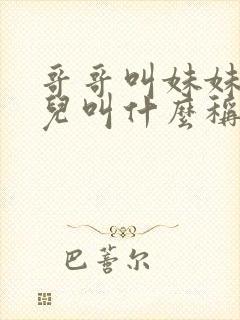 哥哥叫妹妹
兒叫什麼稱
巴蕾尔